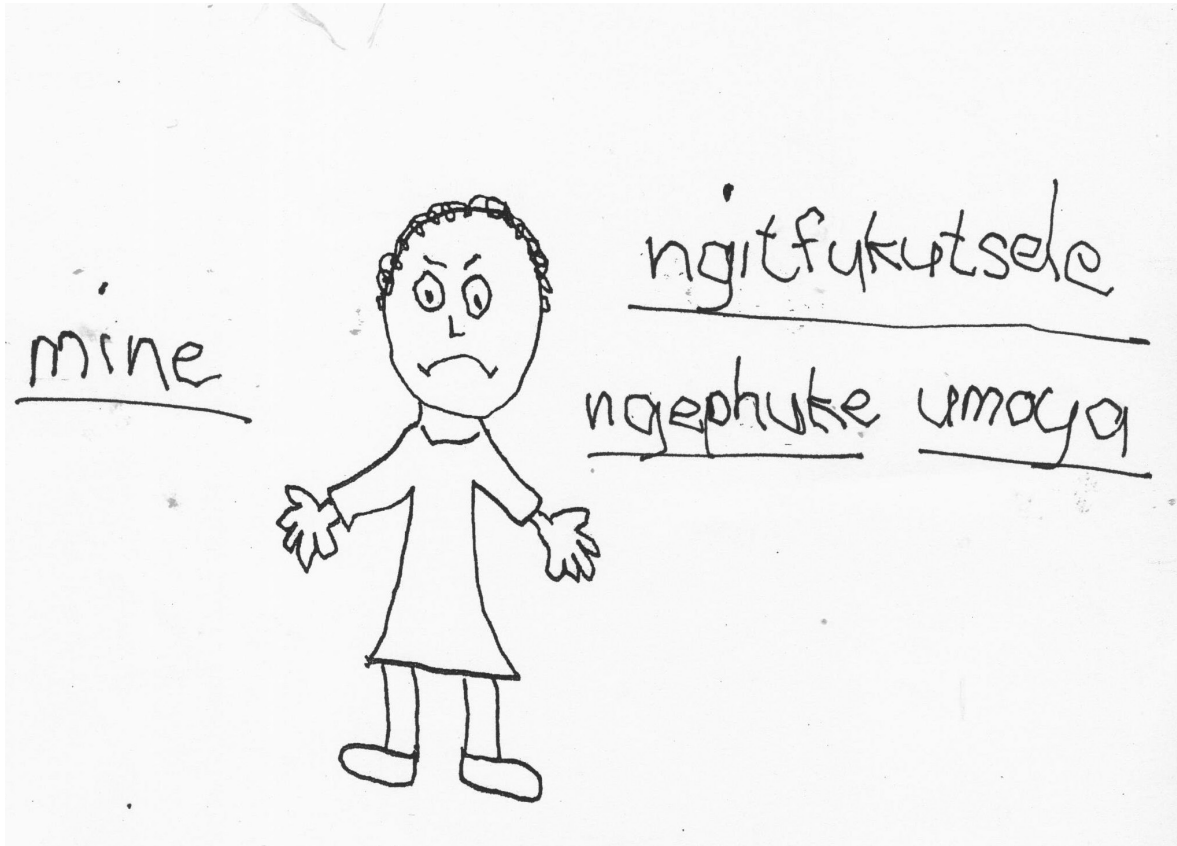 mine
ngitfukutsele
ngephuke umoya